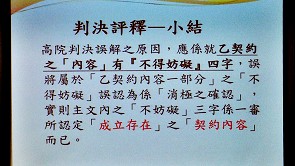 判決評釋—小結
高院判決誤解之原因，應係就乙契約
之「內容」有『不得妨礙』四字，誤
將屬於「乙契約內容一部分」之「不
得妨礙」誤認為係「消極之確認」，
實則主文內之「不妨礙」三字係一審
所認定「成立存在」之「契約內容」
而已。